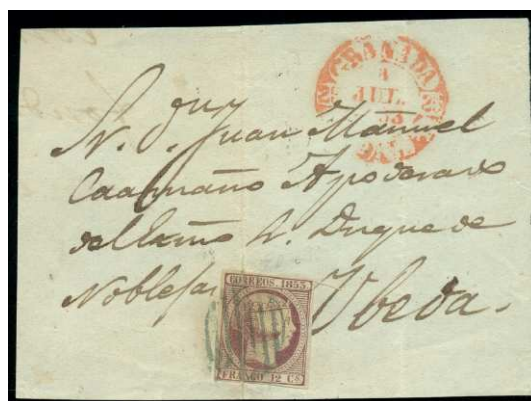 GRANADA
JUL.
S. D. Juan Manuel
Caamaño Apoderado
del Exmo Sr. Duque de
Noblejas
Ubeda.
CORREOS. 1853
FRANCO 12 Cs